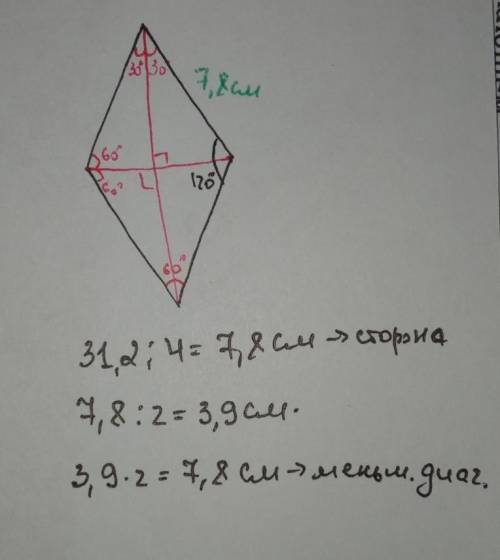 30° 30
7,8 см
60°
60°
120°
60°
31,2 : 4 = 7,8 см → сторона
7,8 : 2 = 3,9 см.
3,9 · 2 = 7,8 см → меньш. диаг.